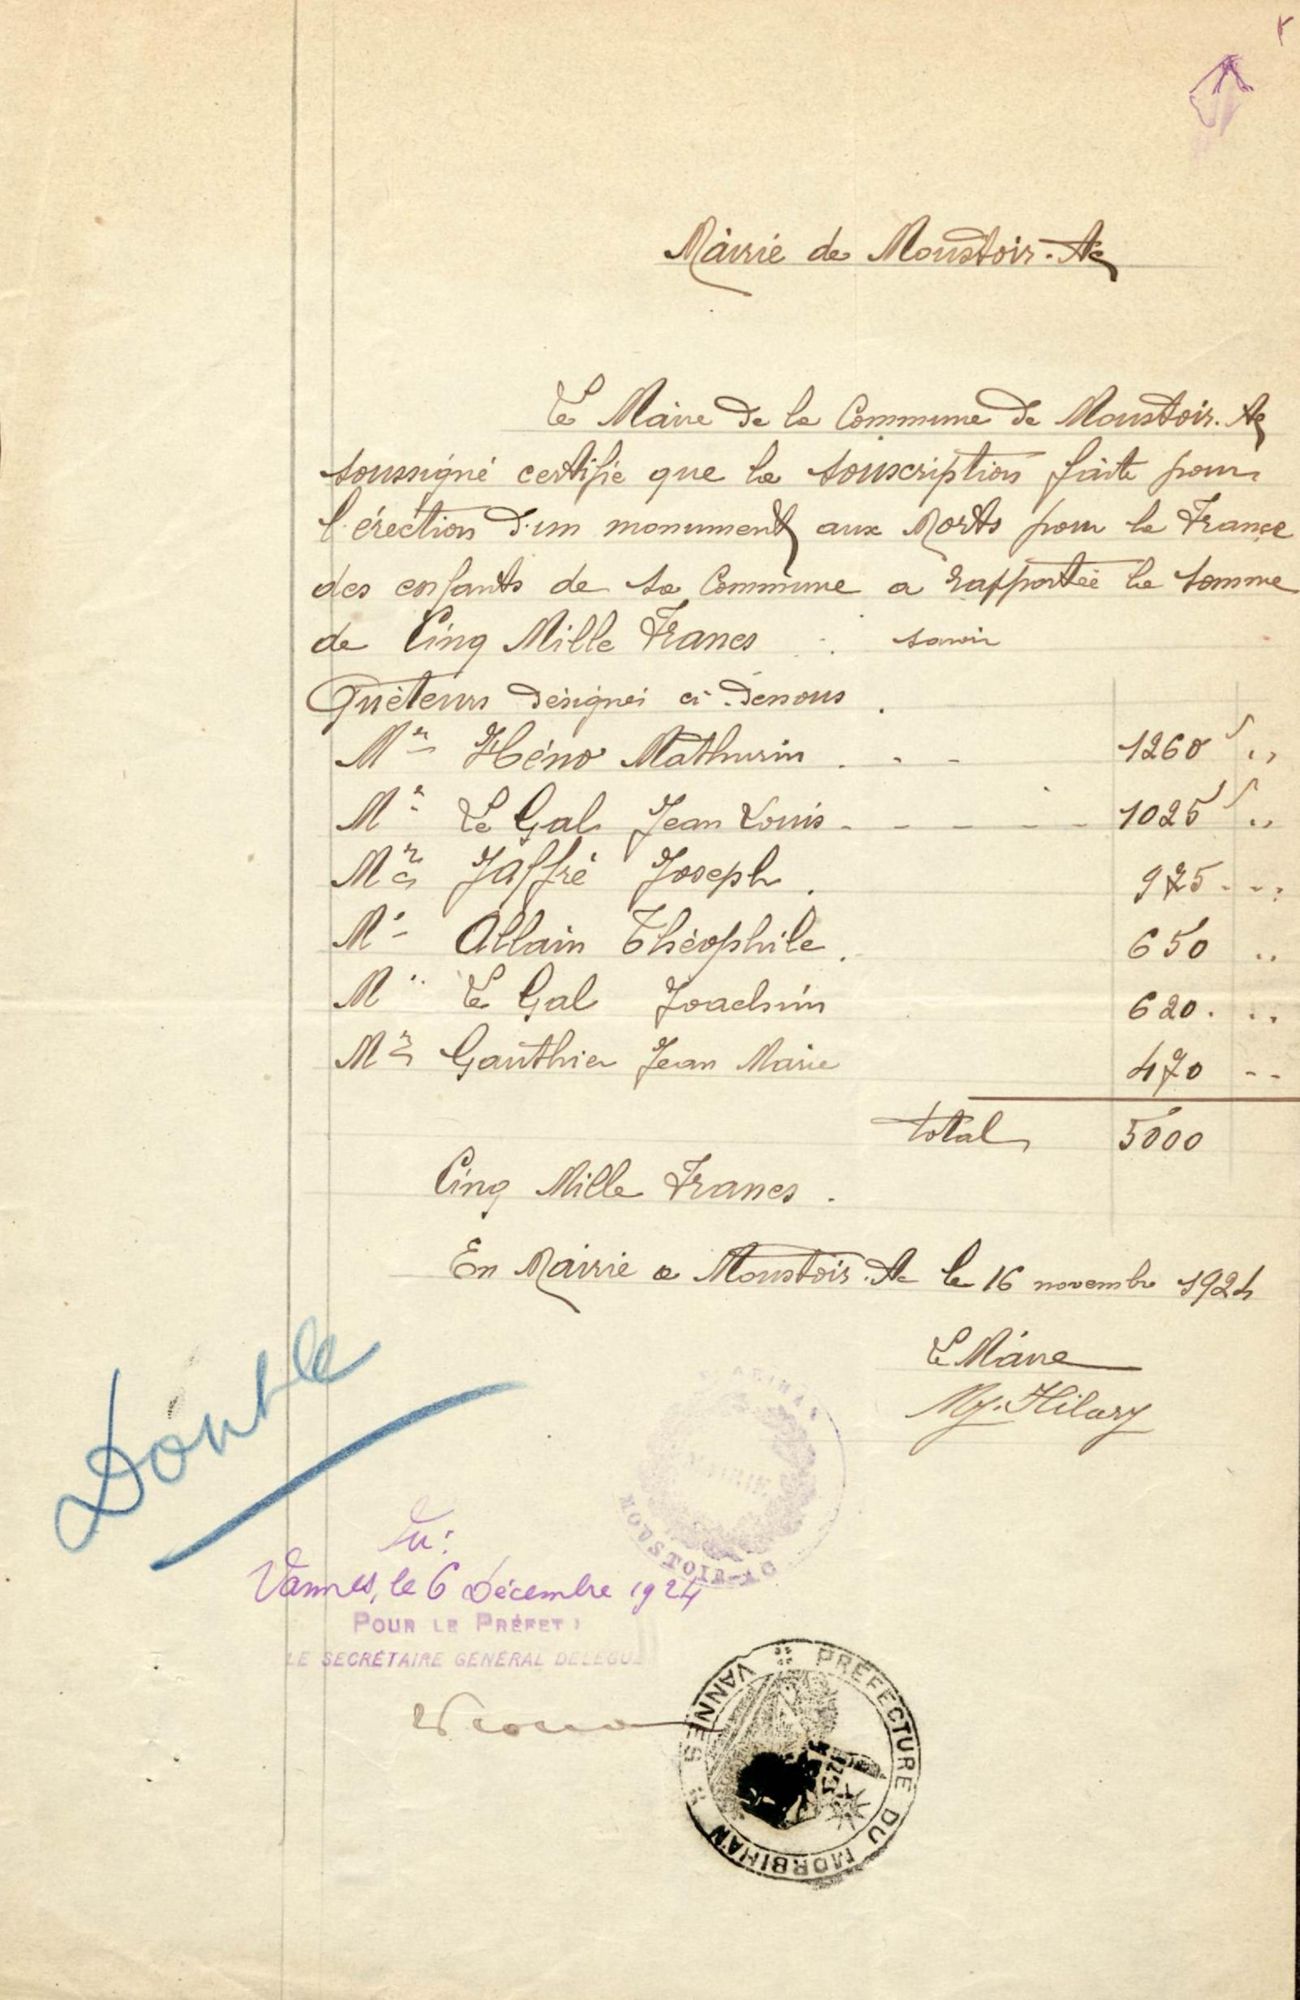 Mairie de Moustoir-Ac
Le Maire de la Commune de Moustoir-Ac
soussigné certifie que la souscription faite pour
l'érection d'un monument aux Morts pour la France
des enfants de sa Commune a rapportée la somme
de Cinq Mille Francs savoir
Quêteurs désignés ci-dessous.
Mr Héno Mathurin . - - 1260 f ,,
Mr Le Gal Jean Louis - - - - - 1025 f ,,
Mr Jaffré Joseph . 975 - - ,,
Mr Allain Théophile . 650 ,,
Mr Le Gal Joachim 620. ,,
Mr Gauthier Jean Marie 470 - -
Total 5000
Cinq Mille Francs.
En Mairie a Moustoir-Ac le 16 novembre 1924
Le Maire
My. Hilary
Double
Vu:
Vannes, le 6 Décembre 1924
POUR LE PRÉFET:
LE SECRÉTAIRE GÉNÉRAL DÉLÉGUÉ
MORBIHAN
MAIRIE
MOUSTOIR-AC
PRÉFECTURE DU MORBIHAN
VANNES